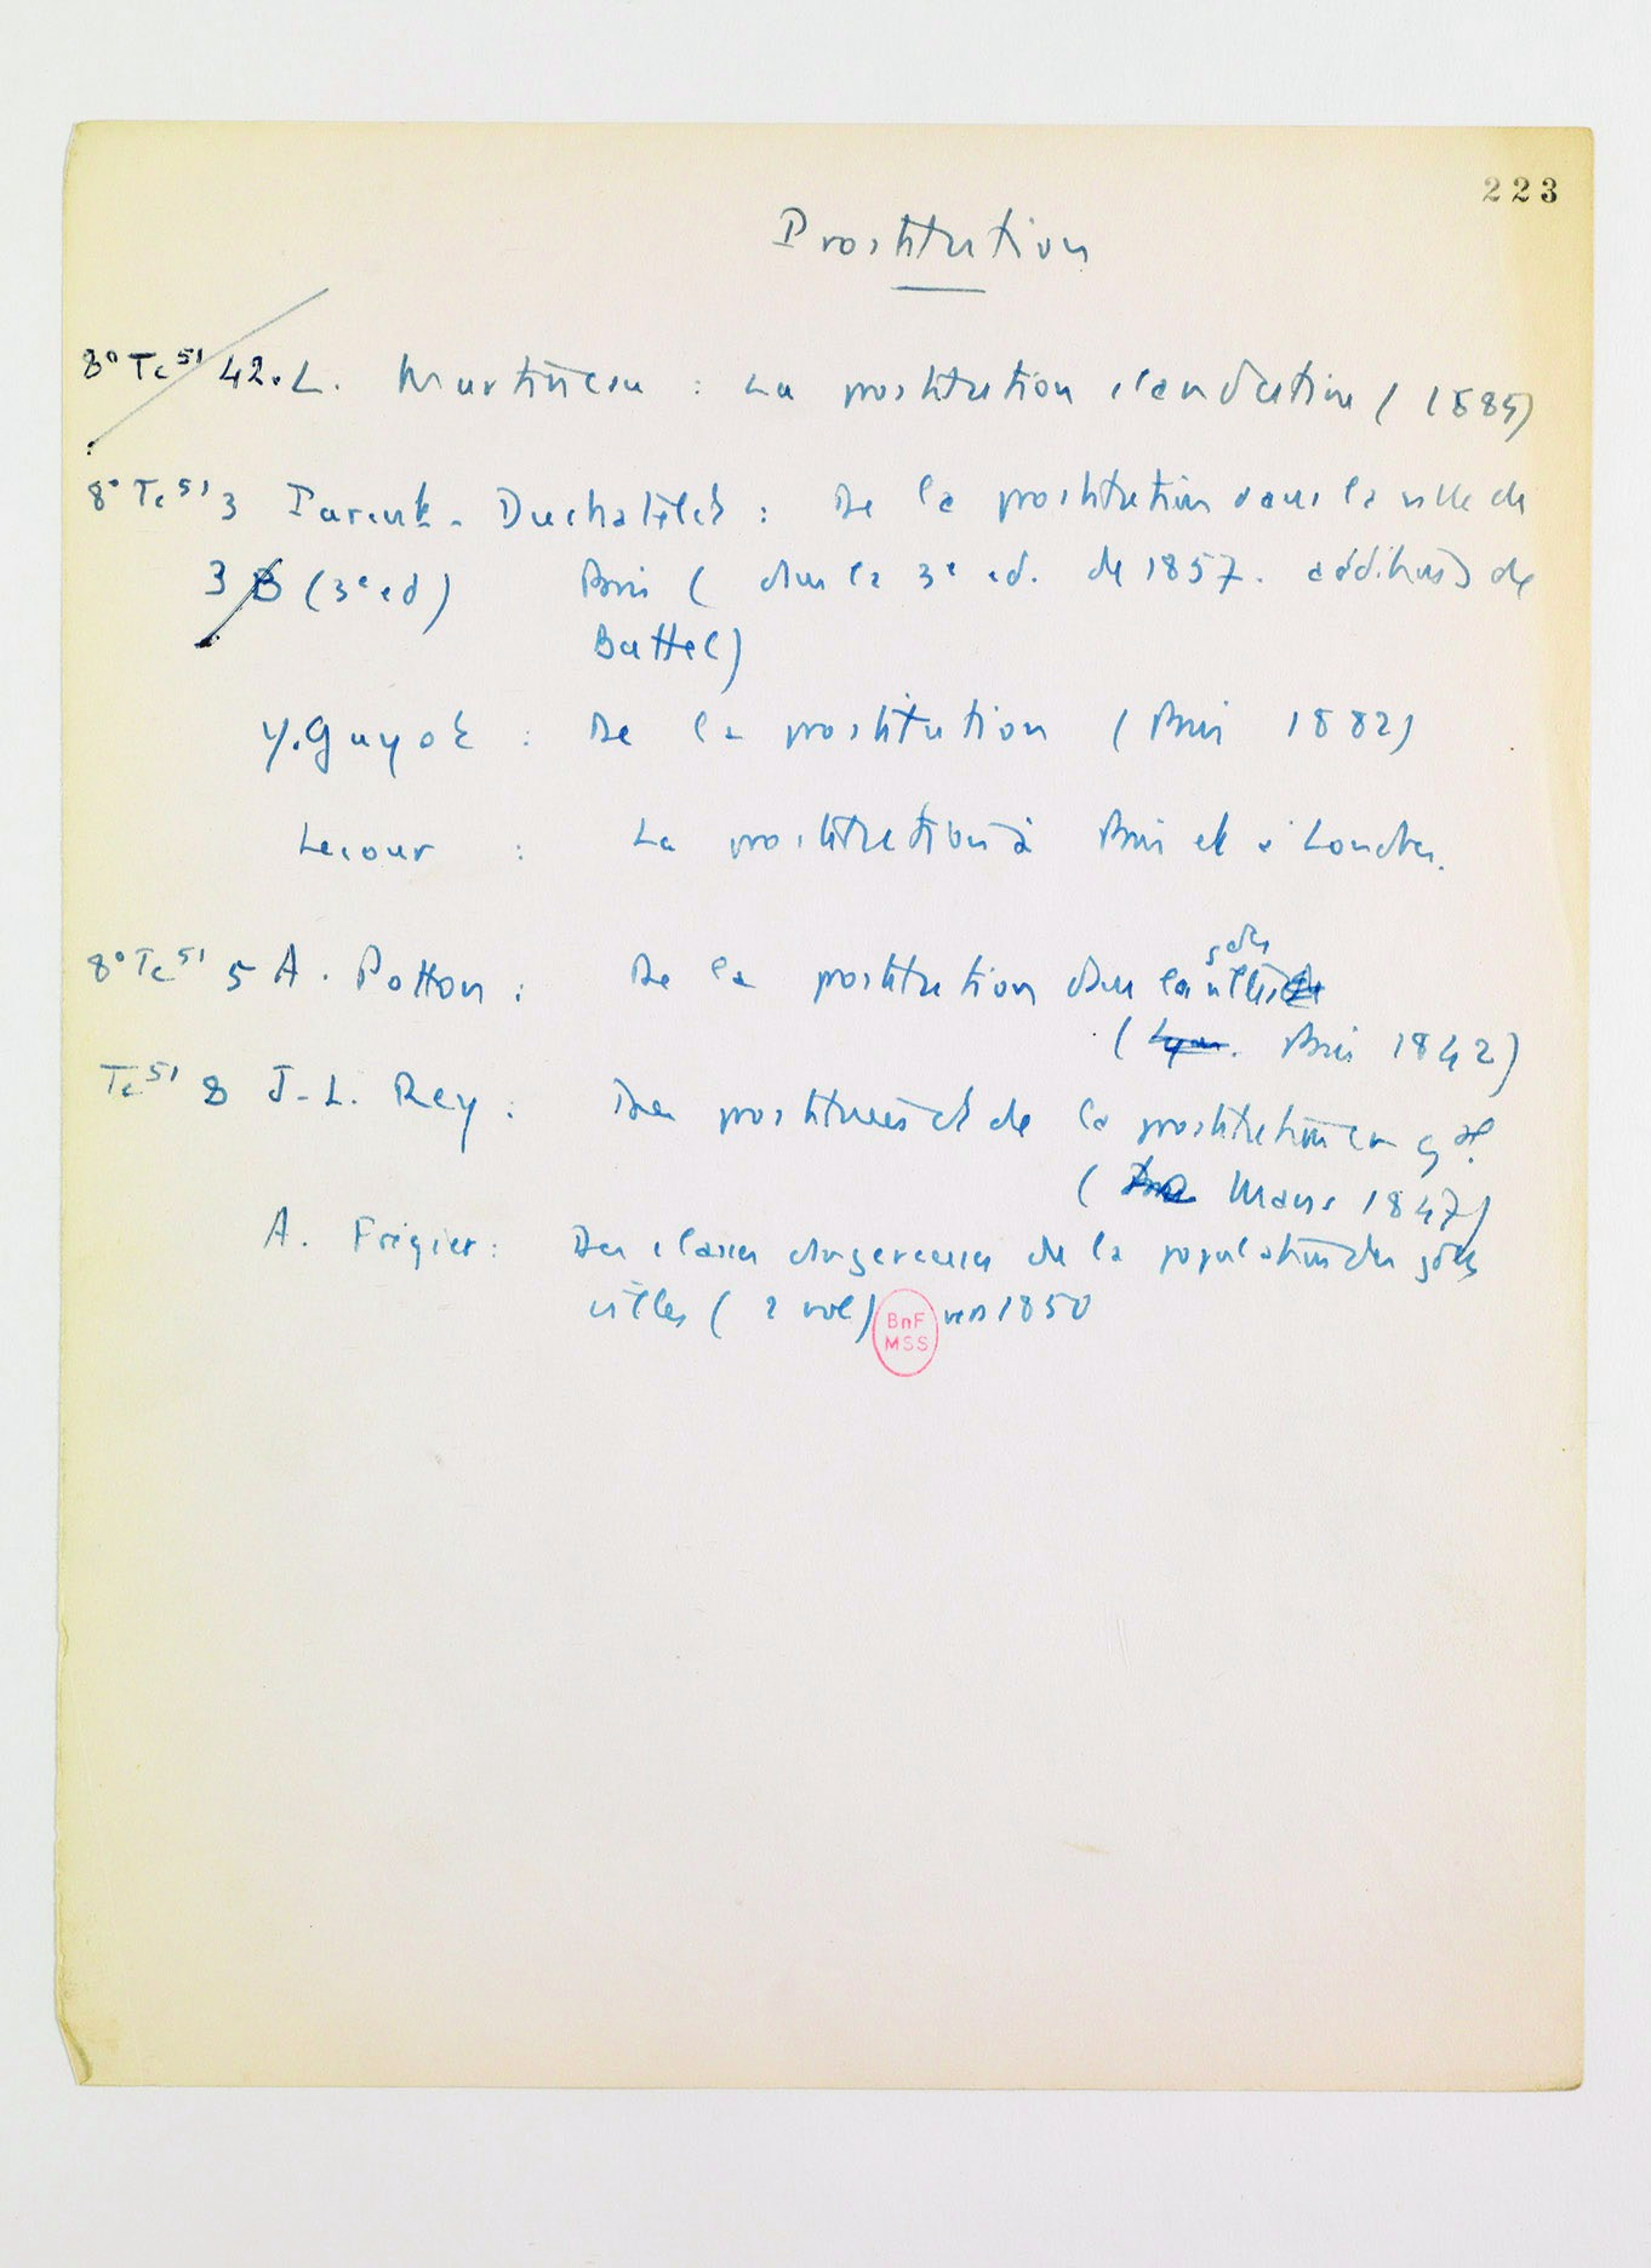 223
Prostitution
8° Tc 51 42. L. Martineau : La prostitution clandestine (1885)
8° Tc 51 3 Parent-Duchatelet : De la prostitution dans la ville de
3 B (3e ed) Paris ( dans la 3e ed. de 1857. additions de
Battel)
Y. Guyot : De la prostitution (Paris 1882)
Lecour : La prostitution à Paris et à Londres.
8° Tc 51 5 A. Potton : De la prostitution dans les gdes villes
( Lyon. Paris 1842)
Tc 51 8 J-L. Rey : Des prostituées et de la prostitution en gal.
( Mans 1847)
A. Frégier : Des classes dangereuses de la population des gdes
villes ( 2 vol) vers 1850
BnF
MSS